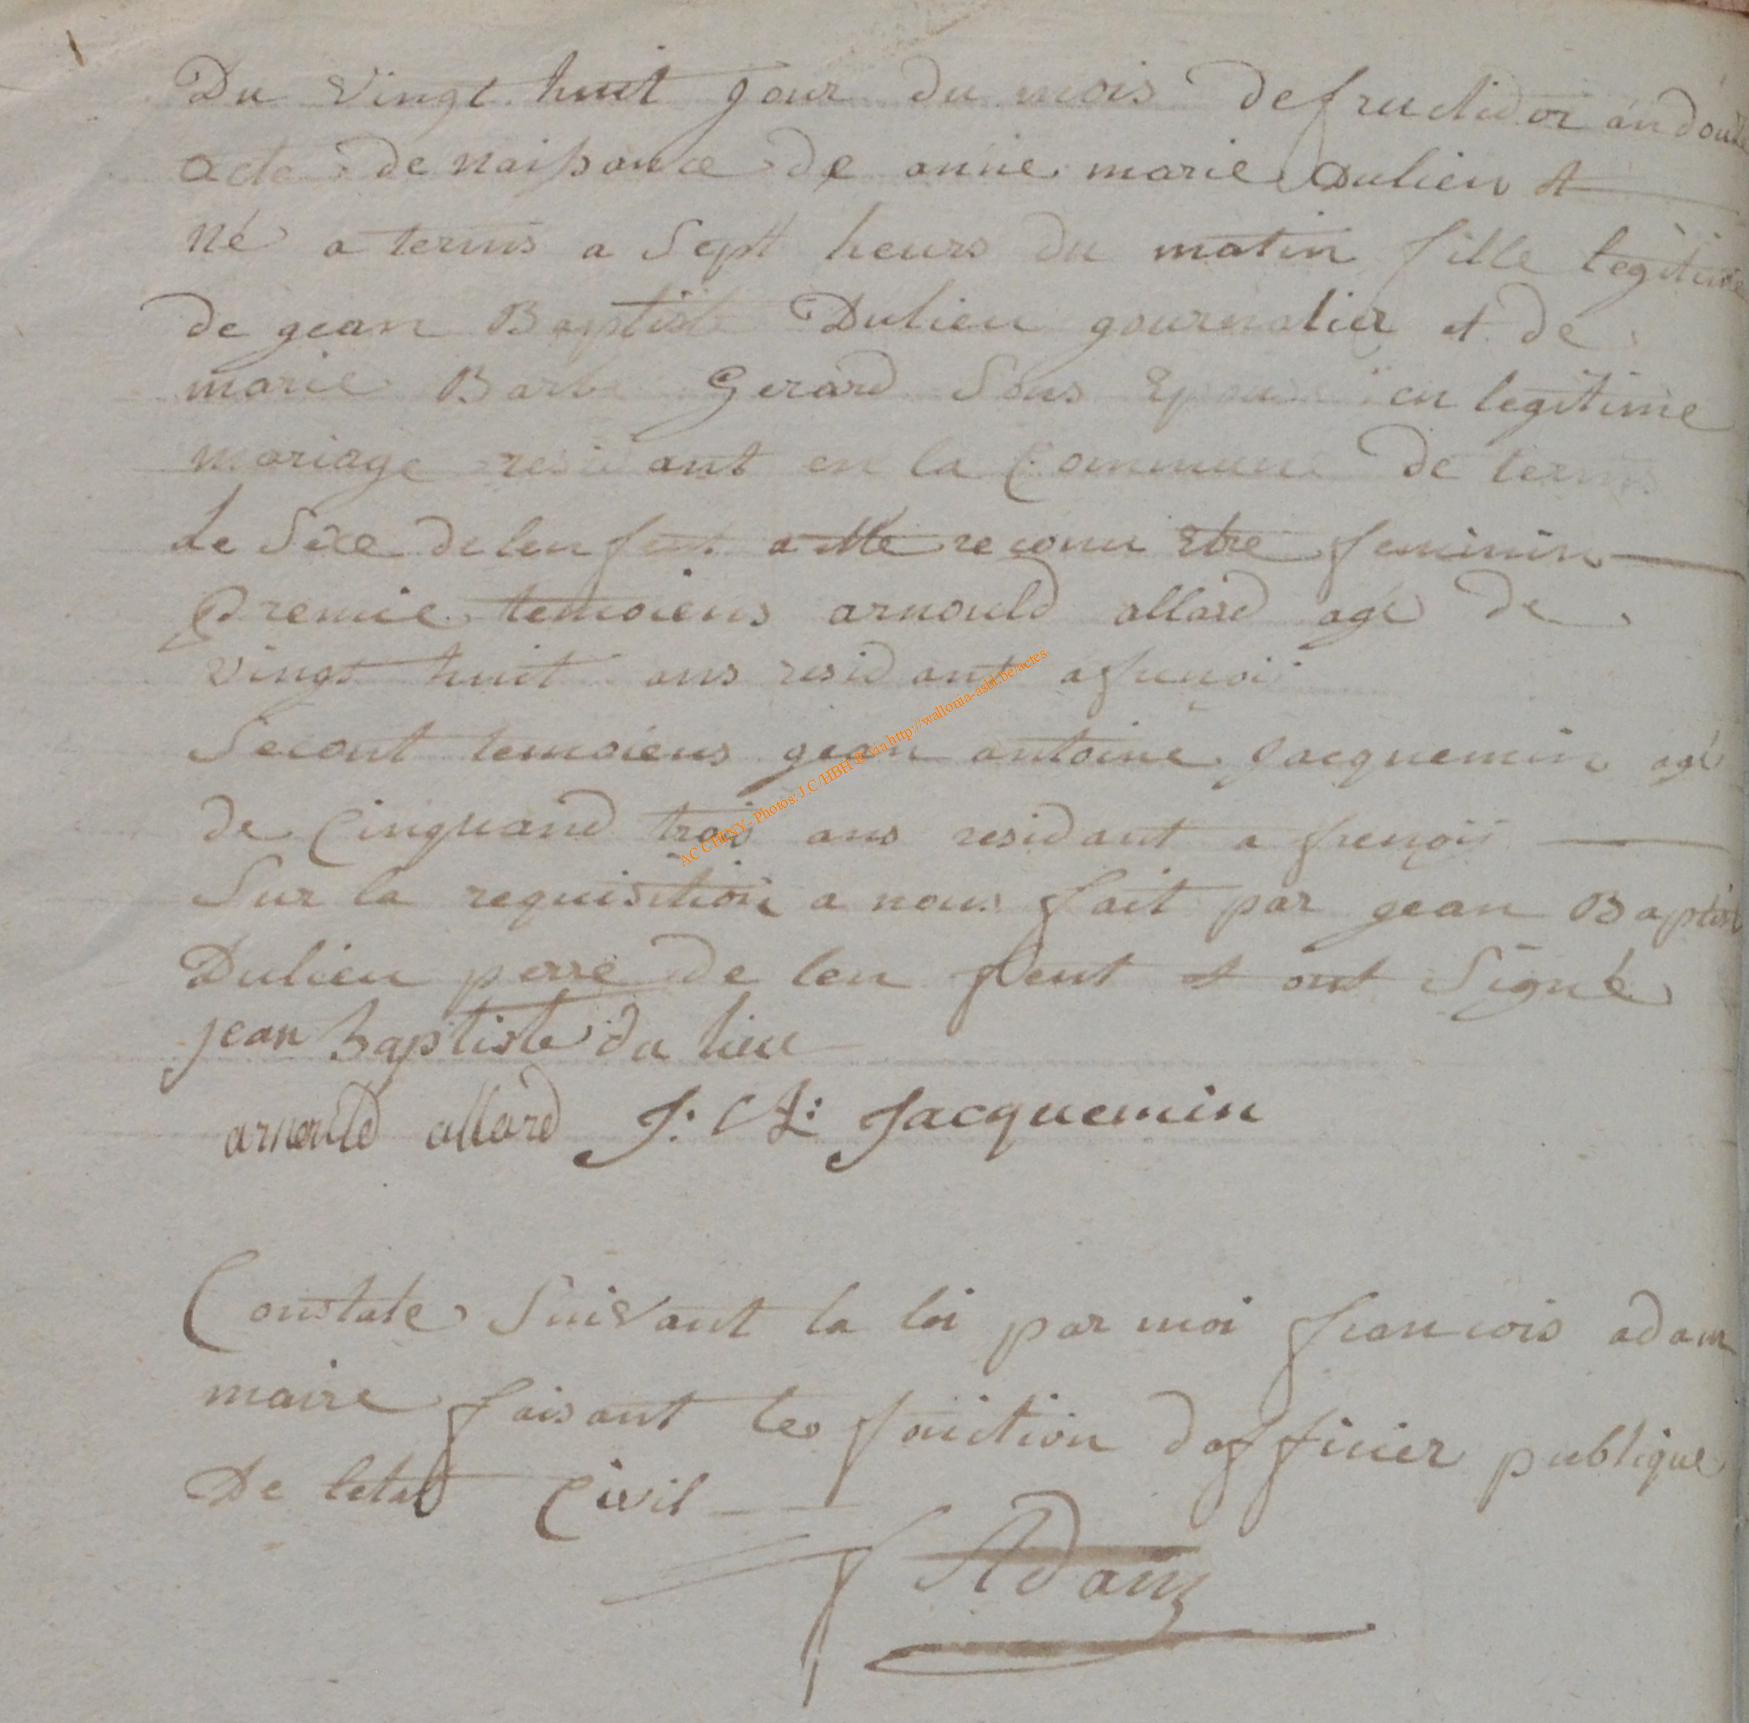 Du vingt huit jour du mois defructidor an douze
acte de naissance de anne marie Dulieu et
né a termes a sept heurs du matin fille legitime
de gean Baptiste Dulieu gournalier et de
marie Barbe Gerard sons Epouse en legitime
mariage residant en la Commune de termes
Le Sexe delenfent a ette reconu Etre feminin
Premie temoiens arnould allard agé de
vingt huit ans residant a frenoi
Secont temoiens gean antoine Jacquemin agé
de Cinquand trois ans residant a frenoii
Sur la requisition a nous fait par gean Baptiste
Dulieu perre de len fent et ont Signé
jean baptiste du lieu
arnould allard J: A: Jacquemin
Constate Suivant la loi par moi francois adam
maire faisant les fonction dofficier publique
De letat Civil
f Adam
AC CHINY - Photos: J.C/HBH © via http://wallonia-asbl.be/actes